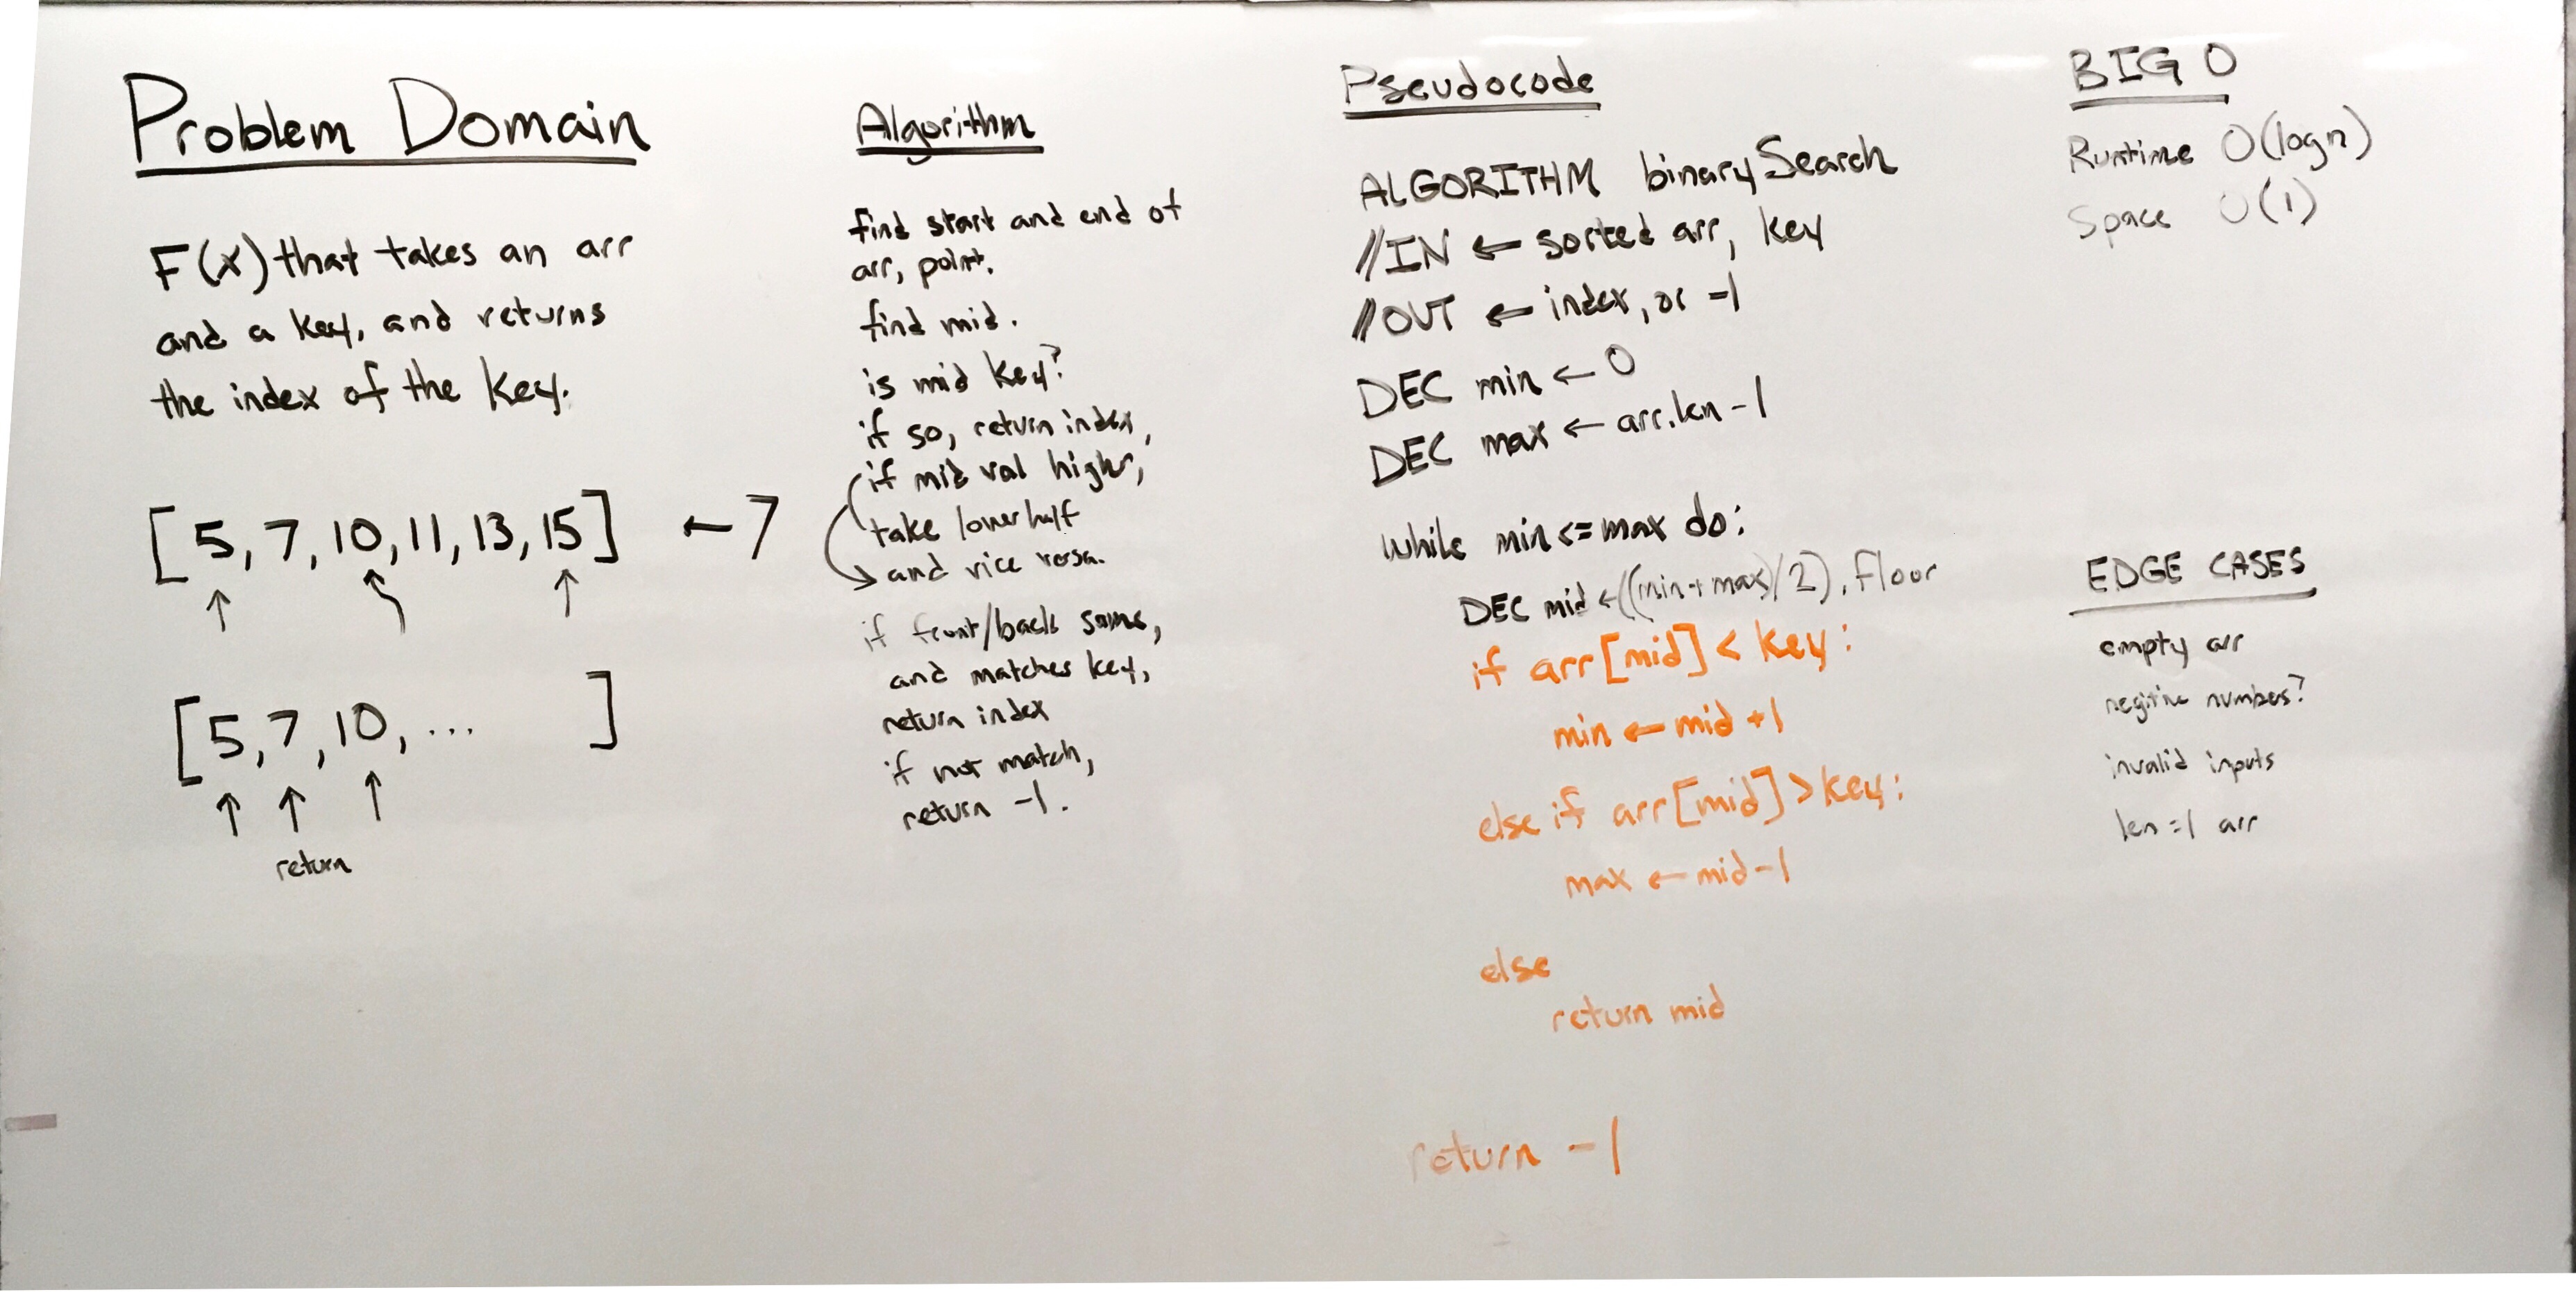 Problem Domain
F(x) that takes an arr
and a key, and returns
the index of the key.
[5, 7, 10, 11, 13, 15] ← 7
↑ ↑ ↑
[5, 7, 10, ... ]
↑ ↑ ↑
return
Algorithm
find start and end of
arr, point.
find mid.
is mid key?
if so, return index,
if mid val higher,
take lower half
and vice versa.
if front/back same,
and matches key,
return index
if not match,
return -1.
Pseudocode
ALGORITHM binarySearch
//IN ← sorted arr, key
//OUT ← index, or -1
DEC min ← 0
DEC max ← arr.len - 1
while min <= max do:
DEC mid ← ((min + max)/2).floor
if arr[mid] < key:
min ← mid + 1
else if arr[mid] > key:
max ← mid - 1
else
return mid
return -1
BIG O
Runtime O(logn)
Space O(1)
EDGE CASES
empty arr
negitive numbers?
invalid inputs
len = 1 arr